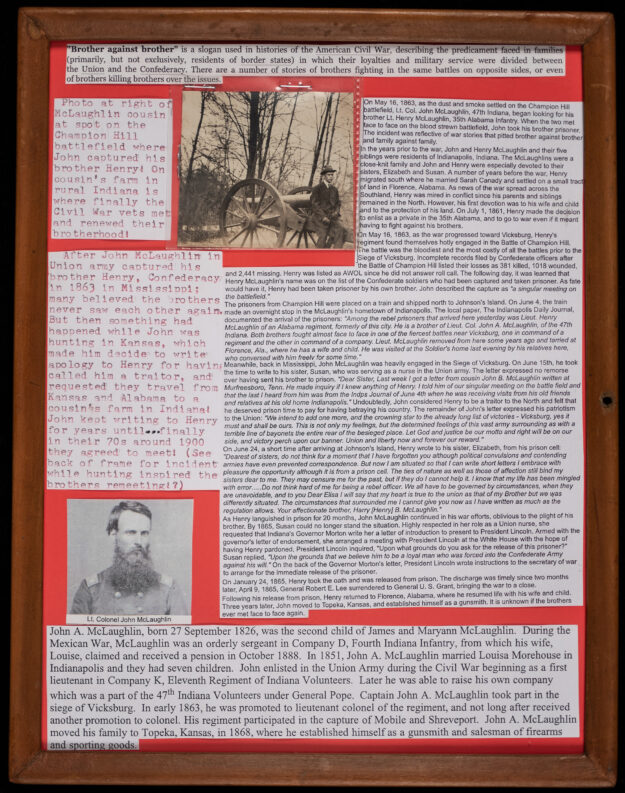 "Brother against brother" is a slogan used in histories of the American Civil War, describing the predicament faced in families
(primarily, but not exclusively, residents of border states) in which their loyalties and military service were divided between
the Union and the Confederacy. There are a number of stories of brothers fighting in the same battles on opposite sides, or even
of brothers killing brothers over the issues.
Photo at right of
McLaughlin cousin
at spot on the
Champion Hill
battlefield where
John captured his
brother Henry! On
cousin's farm in
rural Indiana is
where finally the
Civil War vets met
and renewed their
brotherhood!
After John McLaughlin in
Union army captured his
brother Henry, Confederacy
in 1863 in Mississippi;
many believed the brothers
never saw each other again.
But then something had
happened while John was
hunting in Kansas, which
made him decide to write
apology to Henry for having
called him a traitor, and
requested they travel from
Kansas and Alabama to a
cousin's farm in Indiana!
John kept writing to Henry
for years until...finally
in their 70s around 1900
they agreed to meet! (See
back of frame for incident
while hunting inspired the
brothers remeeting!?)
On May 16, 1863, as the dust and smoke settled on the Champion Hill
battlefield, Lt. Col. John McLaughlin, 47th Indiana, began looking for his
brother Lt. Henry McLaughlin, 35th Alabama Infantry. When the two met
face to face on the blood strewn battlefield, John took his brother prisoner.
The incident was reflective of war stories that pitted brother against brother
and family against family.
In the years prior to the war, John and Henry McLaughlin and their five
siblings were residents of Indianapolis, Indiana. The McLaughlins were a
close-knit family and John and Henry were especially devoted to their
sisters, Elizabeth and Susan. A number of years before the war, Henry
migrated south where he married Sarah Canady and settled on a small tract
of land in Florence, Alabama. As news of the war spread across the
Southland, Henry was mired in conflict since his parents and siblings
remained in the North. However, his first devotion was to his wife and child
and to the protection of his land. On July 1, 1861, Henry made the decision
to enlist as a private in the 35th Alabama, and to go to war even if it meant
having to fight against his brothers.
On May 16, 1863, as the war progressed toward Vicksburg, Henry's
regiment found themselves hotly engaged in the Battle of Champion Hill.
The battle was the bloodiest and the most costly of all the battles prior to the
Siege of Vicksburg. Incomplete records filed by Confederate officers after
the Battle of Champion Hill listed their losses as 381 killed, 1018 wounded,
and 2,441 missing. Henry was listed as AWOL since he did not answer roll call. The following day, it was learned that
Henry McLaughlin's name was on the list of the Confederate soldiers who had been captured and taken prisoner. As fate
would have it, Henry had been taken prisoner by his own brother. John described the capture as "a singular meeting on
the battlefield."
The prisoners from Champion Hill were placed on a train and shipped north to Johnson's Island. On June 4, the train
made an overnight stop in the McLaughlin's hometown of Indianapolis. The local paper, The Indianapolis Daily Journal,
documented the arrival of the prisoners: "Among the rebel prisoners that arrived here yesterday was Lieut. Henry
McLaughlin of an Alabama regiment, formerly of this city. He is a brother of Lieut. Col. John A. McLaughlin, of the 47th
Indiana. Both brothers fought almost face to face in one of the fiercest battles near Vicksburg, one in command of a
regiment and the other in command of a company. Lieut. McLaughlin removed from here some years ago and tarried at
Florence, Ala., where he has a wife and child. He was visited at the Soldier's home last evening by his relatives here,
who conversed with him freely for some time."
Meanwhile, back in Mississippi, John McLaughlin was heavily engaged in the Siege of Vicksburg. On June 15th, he took
the time to write to his sister, Susan, who was serving as a nurse in the Union army. The letter expressed no remorse
over having sent his brother to prison. "Dear Sister, Last week I got a letter from cousin John B. McLaughlin written at
Murfreesboro, Tenn. He made inquiry if I knew anything of Henry. I told him of our singular meeting on the battle field and
that the last I heard from him was from the Indps Journal of June 4th when he was receiving visits from his old friends
and relatives at his old home Indianapolis." Undoubtedly, John considered Henry to be a traitor to the North and felt that
he deserved prison time to pay for having betraying his country. The remainder of John's letter expressed his patriotism
to the Union: "We intend to add one more, and the crowning star to the already long list of victories - Vicksburg, yes it
must and shall be ours. This is not only my feelings, but the determined feelings of this vast army surrounding as with a
terrible line of bayonets the entire rear of the besieged place. Let God and justice be our motto and right will be on our
side, and victory perch upon our banner. Union and liberty now and forever our reward."
On June 24, a short time after arriving at Johnson's Island, Henry wrote to his sister, Elizabeth, from his prison cell:
"Dearest of sisters, do not think for a moment that I have forgotten you although political convulsions and contending
armies have even prevented correspondence. But now I am situated so that I can write short letters I embrace with
pleasure the opportunity although it is from a prison cell. The ties of nature as well as those of affection still bind my
sisters dear to me. They may censure me for the past, but if they do I cannot help it. I know that my life has been mingled
with error.....Do not think hard of me for being a rebel officer. We all have to be governed by circumstances, when they
are unavoidable, and to you Dear Elisa I will say that my heart is true to the union as that of my Brother but we was
differently situated. The circumstances that surrounded me I cannot give you now as I have written as much as the
regulation allows. Your affectionate brother, Harry [Henry] B. McLaughlin."
As Henry languished in prison for 20 months, John McLaughlin continued in his war efforts, oblivious to the plight of his
brother. By 1865, Susan could no longer stand the situation. Highly respected in her role as a Union nurse, she
requested that Indiana's Governor Morton write her a letter of introduction to present to President Lincoln. Armed with the
governor's letter of endorsement, she arranged a meeting with President Lincoln at the White House with the hope of
having Henry pardoned. President Lincoln inquired, "Upon what grounds do you ask for the release of this prisoner?"
Susan replied, "Upon the grounds that we believe him to be a loyal man who was forced into the Confederate Army
against his will." On the back of the Governor Morton's letter, President Lincoln wrote instructions to the secretary of war
to arrange for the immediate release of the prisoner.
On January 24, 1865, Henry took the oath and was released from prison. The discharge was timely since two months
later, April 9, 1865, General Robert E. Lee surrendered to General U. S. Grant, bringing the war to a close.
Following his release from prison, Henry returned to Florence, Alabama, where he resumed life with his wife and child.
Three years later, John moved to Topeka, Kansas, and established himself as a gunsmith. It is unknown if the brothers
ever met face to face again.
Lt. Colonel John McLaughlin
John A. McLaughlin, born 27 September 1826, was the second child of James and Maryann McLaughlin. During the
Mexican War, McLaughlin was an orderly sergeant in Company D, Fourth Indiana Infantry, from which his wife,
Louise, claimed and received a pension in October 1888. In 1851, John A. McLaughlin married Louisa Morehouse in
Indianapolis and they had seven children. John enlisted in the Union Army during the Civil War beginning as a first
lieutenant in Company K, Eleventh Regiment of Indiana Volunteers. Later he was able to raise his own company
which was a part of the 47th Indiana Volunteers under General Pope. Captain John A. McLaughlin took part in the
siege of Vicksburg. In early 1863, he was promoted to lieutenant colonel of the regiment, and not long after received
another promotion to colonel. His regiment participated in the capture of Mobile and Shreveport. John A. McLaughlin
moved his family to Topeka, Kansas, in 1868, where he established himself as a gunsmith and salesman of firearms
and sporting goods.